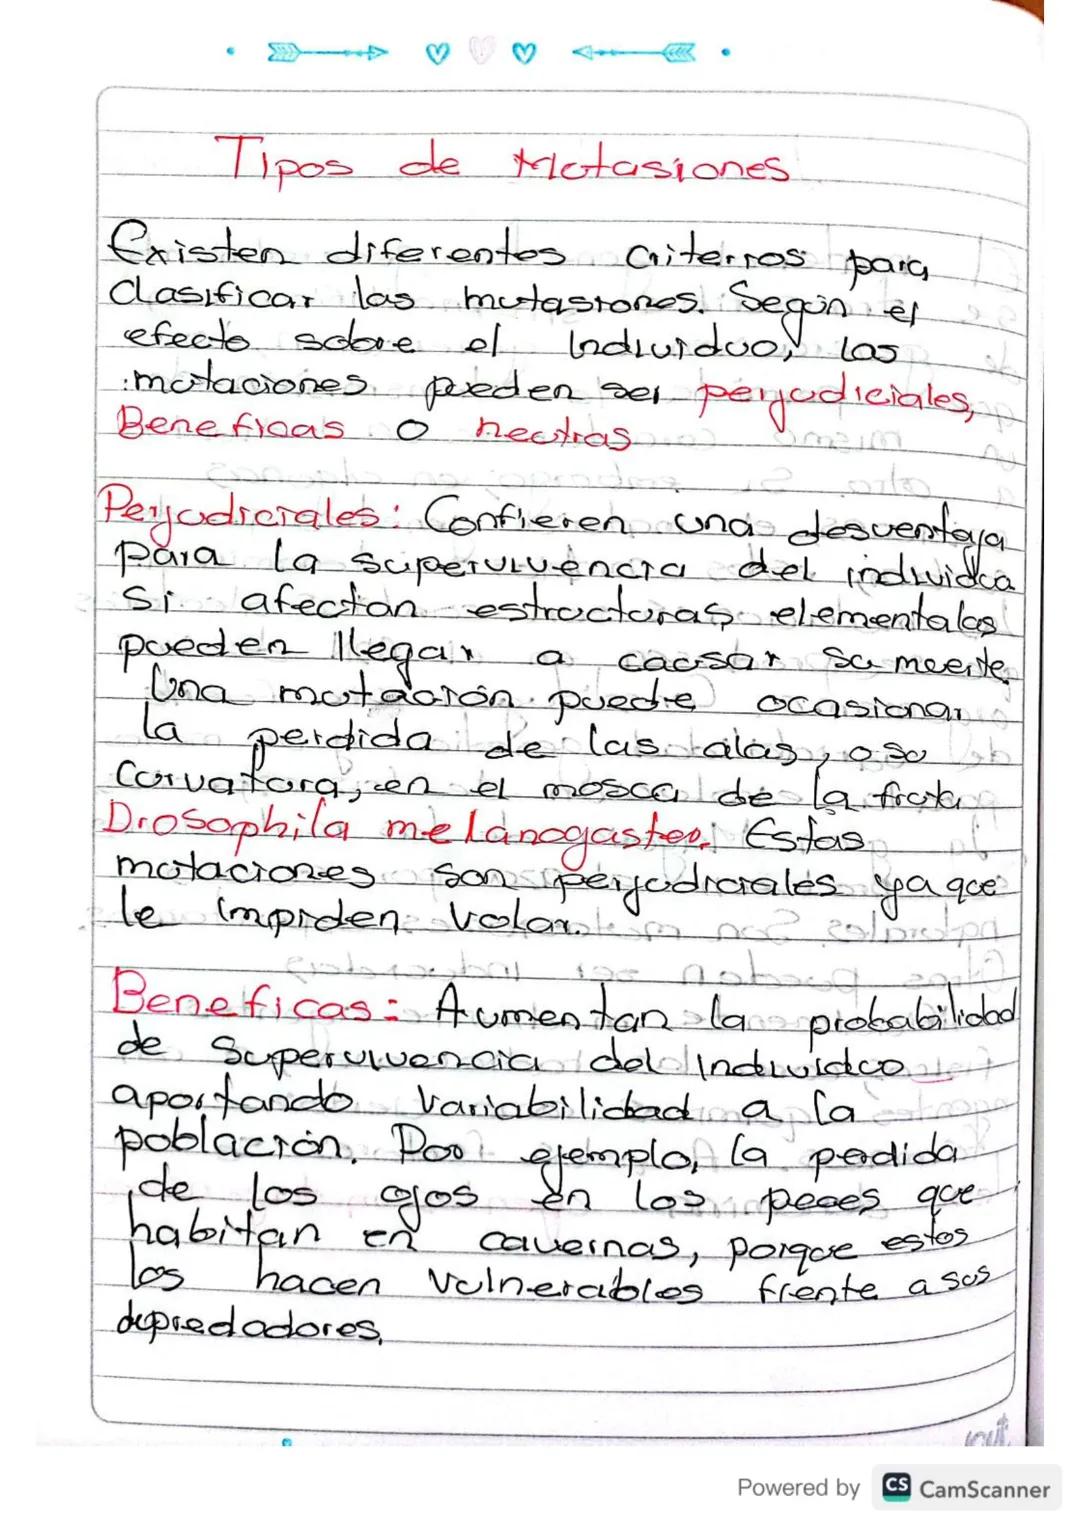 Tipos de Mutasiones
Existen diferentes criterios para
Clasificar las mutasiones. Según el
efecto sobre el Individuo, las
mutaciones pueden ser perjudiciales,
Beneficas o neutras
Perjudiciales: Confieren una desventaja
para la supervivencia del individuo
Si afectan estructuras elementales
pueden llegar a causar su muerte
Una mutación puede ocasionar
la perdida de las alas, o su
Curvatura, en el mosca de la fruta
Drosophila melanogaster. Estas
mutaciones son perjudiciales ya que
le impiden volar.
Beneficas: Aumentan la probabilidad
de Supervivencia del Individuo
aportando variabilidad a la
población. Por ejemplo, la perdida
de los ojos en los peces que
habitan en cavernas, porque estos
los hacen vulnerables frente a sus
depredadores,
Powered by CS CamScanner